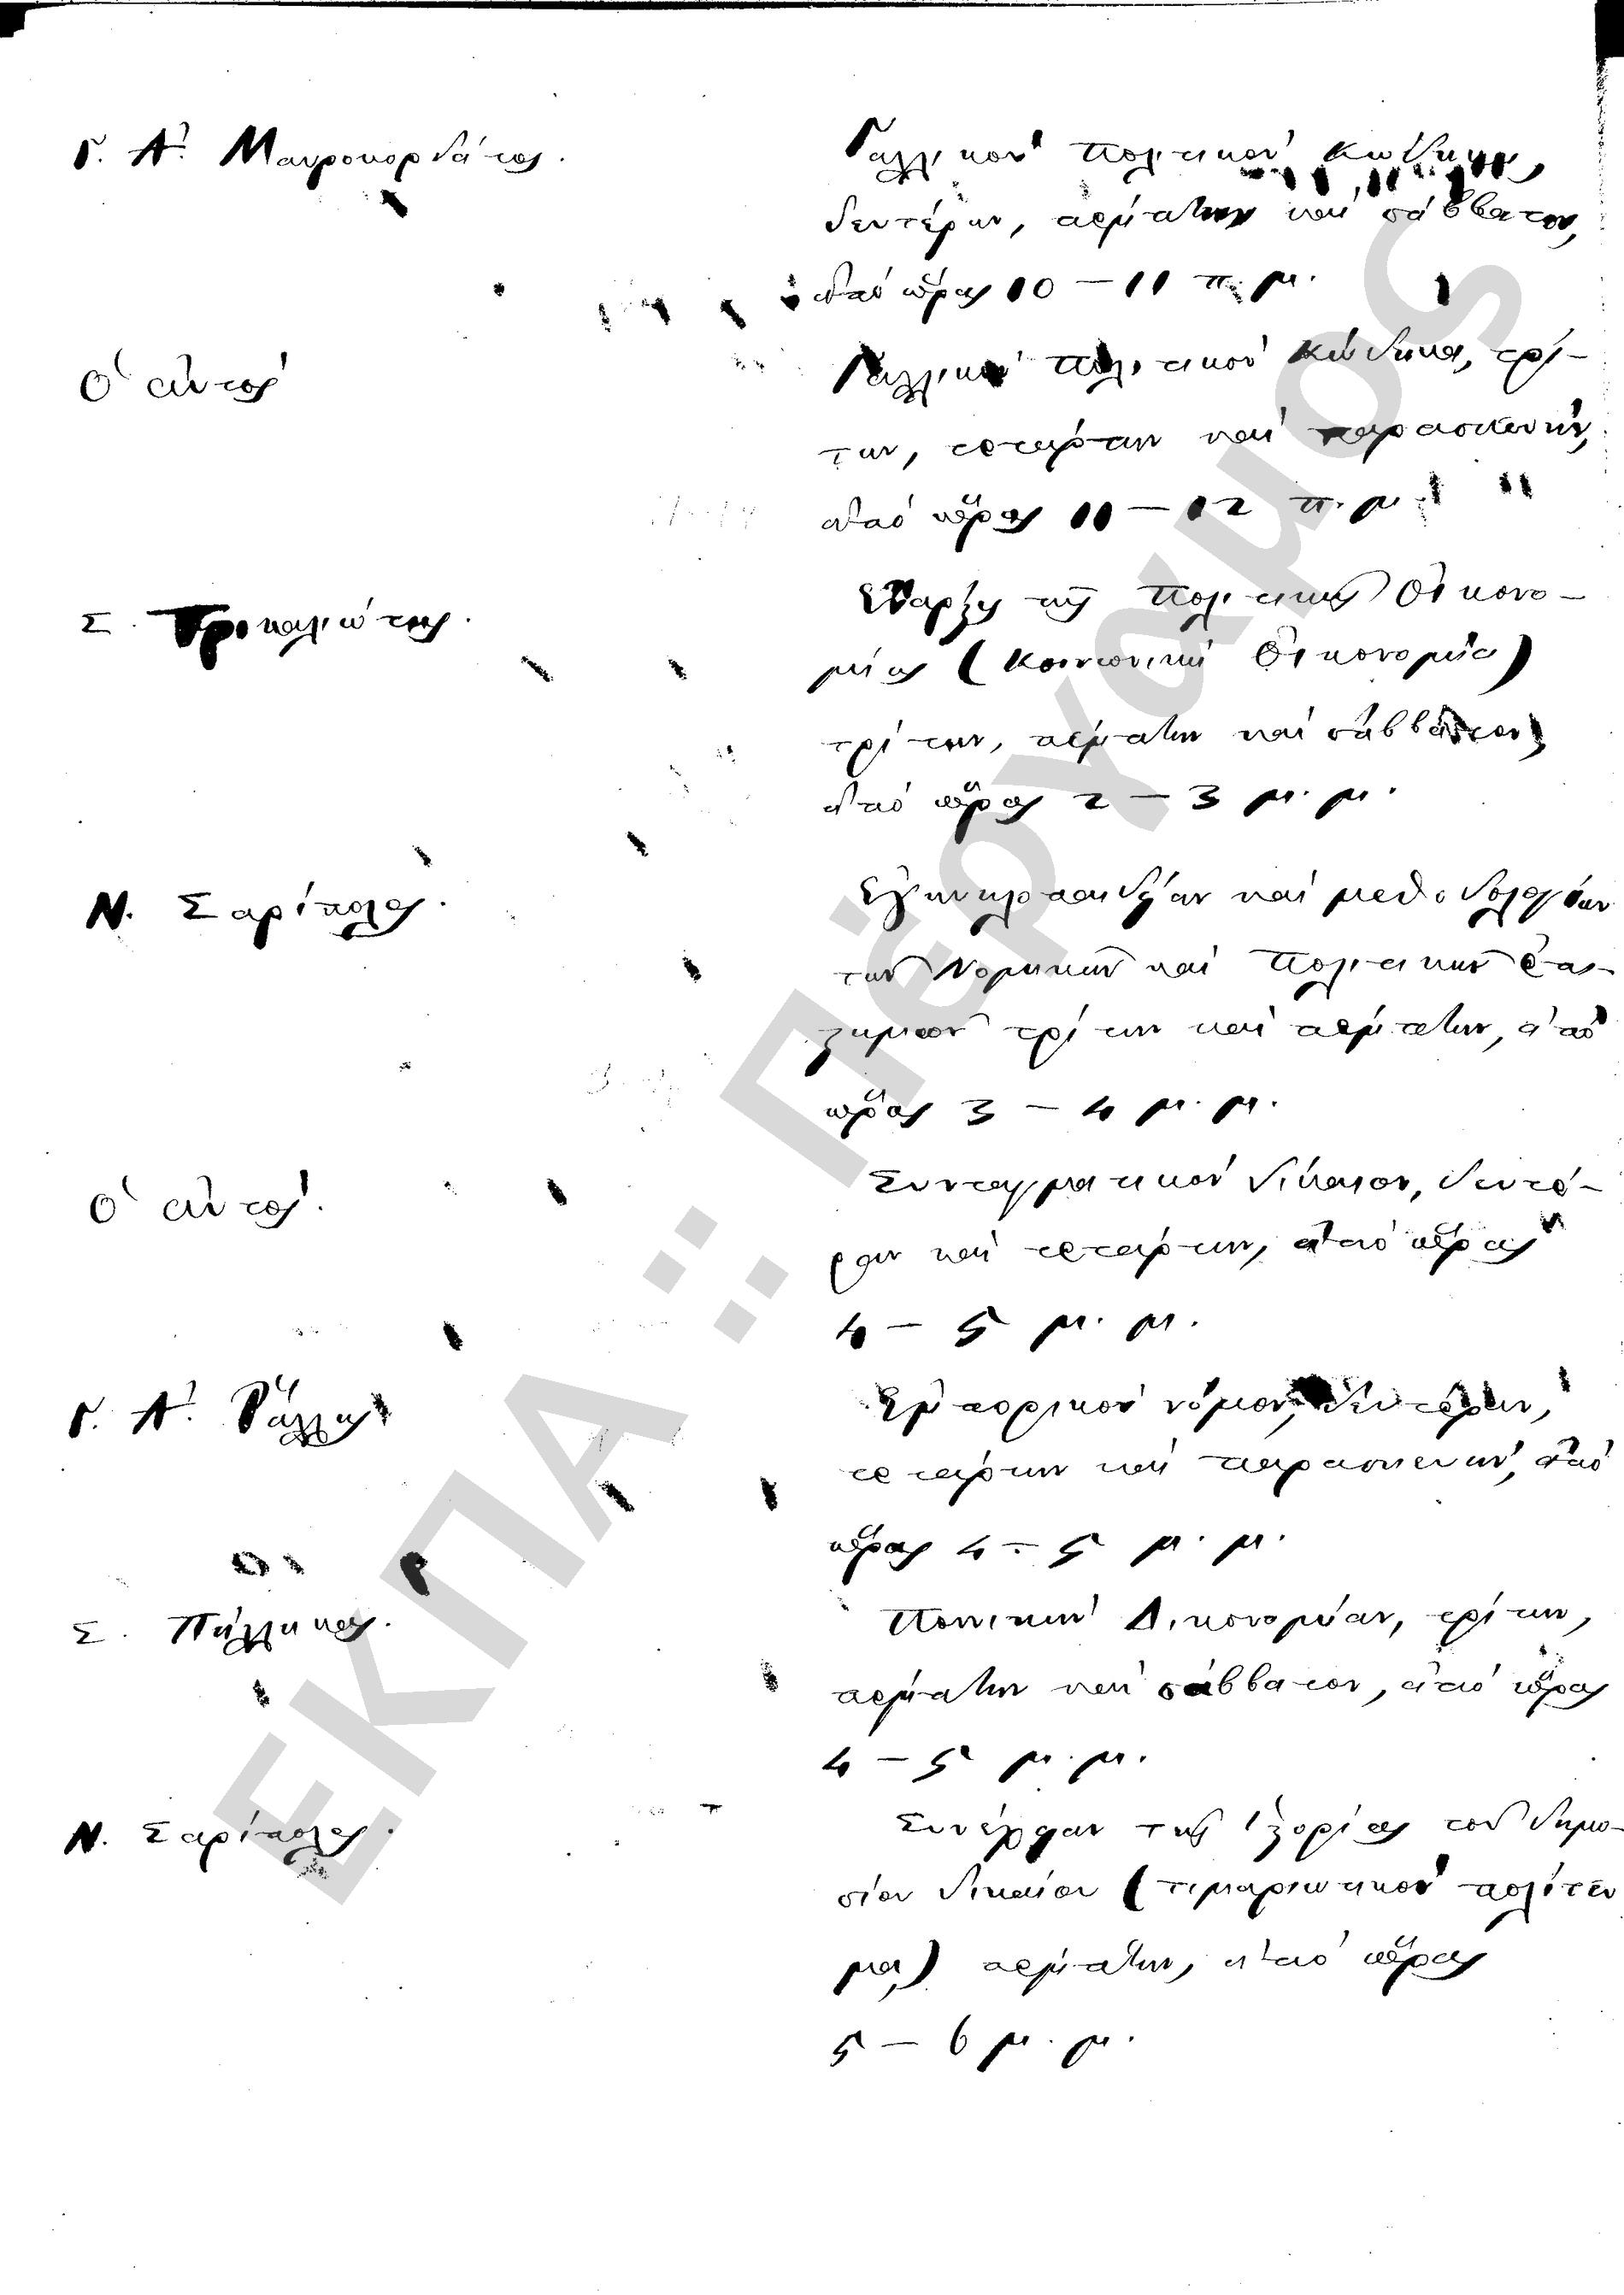 Γ. Ἀ. Μαυροκορδάτος.
Γαλλικὸν πολιτικὸν κώδικα,
δευτέραν, πέμπτην καὶ σάββατον,
ἀπὸ ὥρας 10 – 11 π. μ.
Ὁ αὐτὸς
Γαλλικὸν πολιτικὸν κώδικα, τρί-
την, τετάρτην καὶ παρασκευὴν,
ἀπὸ ὥρας 11 – 12 π. μ.
Σ.
ὕπαρξις τῆς Πολιτικῆς Οἰκονο-
μίας (Κοινωνικὴ Οἰκονομία)
τρίτην, πέμπτην καὶ σάββατον,
ἀπὸ ὥρας 2 – 3 μ. μ.
Ν. Σαρίπολος.
Ἐγκυκλοπαιδείαν καὶ μεθοδολογίαν
τῶν Νομικῶν καὶ Πολιτικῶν ἐπι-
στημῶν τρίτην καὶ πέμπτην, ἀπὸ
ὥρας 3 – 4 μ. μ.
Ὁ αὐτὸς.
Συνταγματικὸν δίκαιον, δευτέ-
ραν καὶ τετάρτην, ἀπὸ ὥρας
4 – 5 μ. μ.
Γ. Ἀ. Ῥάλλης
Ἐμπορικὸν νόμον, δευτέραν,
τετάρτην καὶ παρασκευὴν, ἀπὸ
ὥρας 4 – 5 μ. μ.
Σ. Πήλληκας.
Ποινικὴν Δικονομίαν, τρίτην,
πέμπτην καὶ σάββατον, ἀπὸ ὥρας
4 – 5 μ. μ.
Ν. Σαρίπολος.
Συνέχειαν τῆς ἱστορίας τοῦ δημο-
σίου δικαίου (τιμαριωτικὸν πολίτευ
μα) πέμπτην, ἀπὸ ὥρας
5 – 6 μ. μ.
ΕΚΠΑ :: Πέργαμος